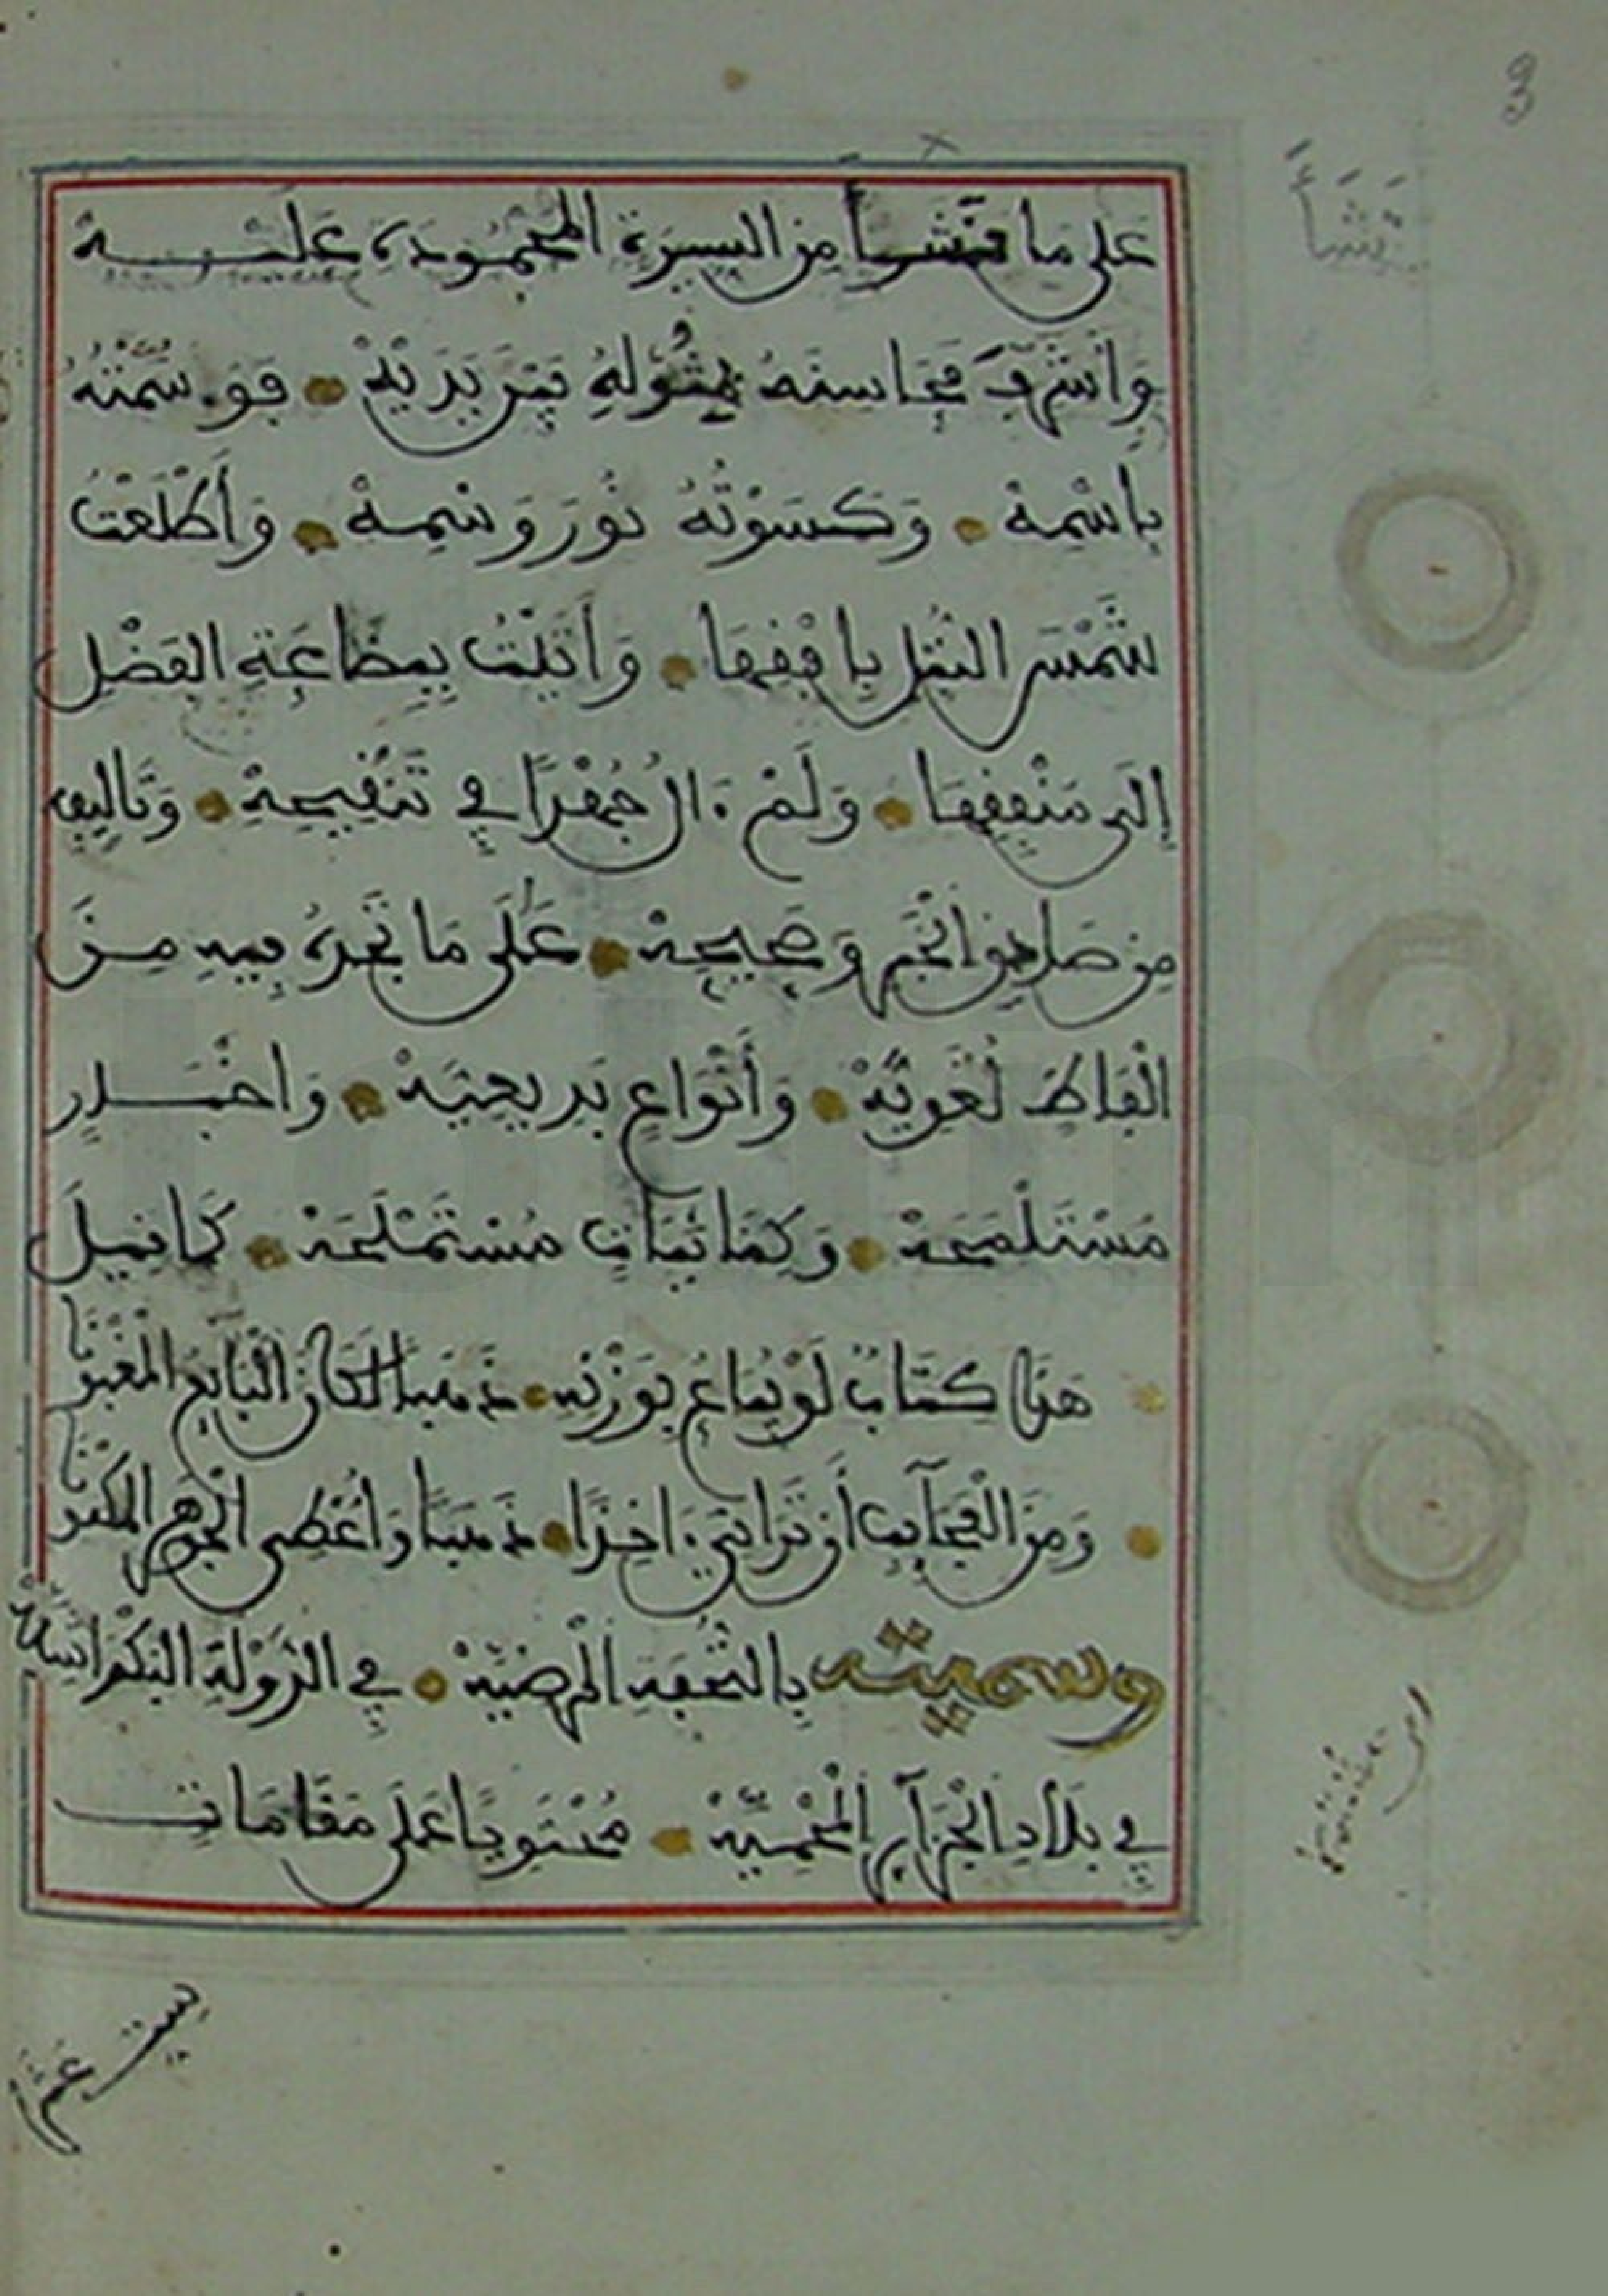 3
نَشَأَ
عَلَى مَا نَشَأَ مِنَ السِيرَةِ المَحْمُودَةِ عَلَيْهِ
وَأُشَرِّفَ مَحَاسِنَهُ بِمُثُولِهِ بَيْنَ يَدَيْهْ • فَوَسَمْتُهُ
بِاسْمِهْ • وَكَسَوْتُهُ نُورَ وَسْمِهْ • وَأَطْلَعْتُ
شَمْسَ النُّبْلِ بِأُفْقِهَا • وَأَتَيْتُ بِبِضَاعَةِ الفَضْلِ
إِلَى مُنْفِقِهَا • وَلَمْ ءَالُ جُهْدًا فِي تَنْقِيحِهْ • وَتَالِيفِهِ
مِن صَادِقِ الخَبَرِ وَصَحِيحِهْ • عَلَى مَا تَجِدُهُ فِيهِ مِنَ
الْفَاظٍ لُغَوِيَّةْ • وَأَنْوَاعٍ بَدِيعِيَّةْ • وَاخْبَارٍ
مُسْتَلْمَحَةْ • وَكِنَايَاتٍ مُسْتَمْلَحَةْ • كَمَا قِيلَ
• هَذَا كِتَابٌ لَوْ يُبَاعُ بِوَزْنِهِ • ذَهَبًا لَكَانَ الْبَايِعُ الْمَغْبُونَا
• وَمِنَ الْعَجَآيِبِ أَن تَرَانِيَ ءَاخِذًا • ذَهَبًا وَاعْطِى الْجَوْهَرَ الْمَكْنُونَا
وسميته بِالتُّحْفَةِ الْمَرْضِيَّةْ • فِي الدَّوْلَةِ الْبَكْدَاشِيَّةْ
فِي بِلَادِ الْجَزَآيِرِ الْمَحْمِيَّةْ • مُحْتَوِيًا عَلَى مَقَامَاتٍ
سِتَّ عَشْرَةَ